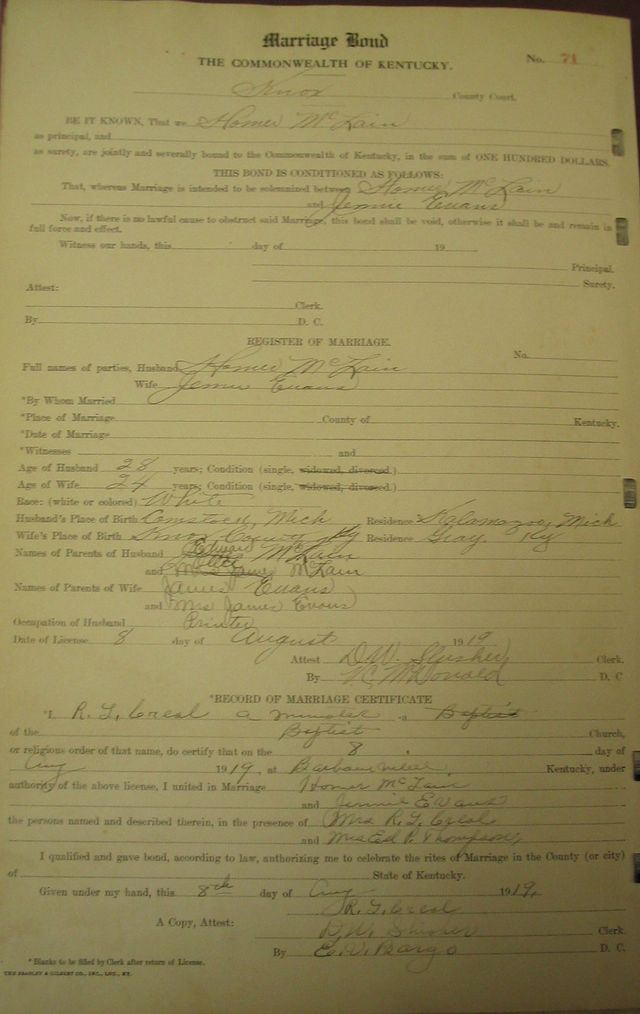 Marriage Bond
THE COMMONWEALTH OF KENTUCKY.
No. 71
Knox County Court.
BE IT KNOWN, That we Homer McLain
as principal, and
as surety, are jointly and severally bound to the Commonwealth of Kentucky, in the sum of ONE HUNDRED DOLLARS.
THIS BOND IS CONDITIONED AS FOLLOWS:
That, whereas Marriage is intended to be solemnized between Homer McLain
and Jennie Evans
Now, if there is no lawful cause to obstruct said Marriage, this bond shall be void, otherwise it shall be and remain in
full force and effect.
Witness our hands, this day of 19
Principal.
Surety.
Attest:
Clerk.
By D. C.
REGISTER OF MARRIAGE.
No.
Full names of parties, Husband Homer McLain
Wife Jennie Evans
*By Whom Married
*Place of Marriage County of Kentucky.
*Date of Marriage
*Witnesses and
Age of Husband 28 years; Condition (single, widowed, divorced.)
Age of Wife 24 years; Condition (single, widowed, divorced.)
Race: (white or colored) White
Husband's Place of Birth Comstock, Mich Residence Kalamazoo, Mich
Wife's Place of Birth Knox County Ky Residence Gray, Ky
Names of Parents of Husband Edward McLain
and McLain
Names of Parents of Wife James Evans
and Mrs James Evans
Occupation of Husband Printer
Date of License 8 day of August 1919
Attest D.W. Slusher Clerk.
By McDonald D. C
*RECORD OF MARRIAGE CERTIFICATE
*I, R. L. Creal a minister a Baptist
of the Baptist Church,
or religious order of that name, do certify that on the 8 day of
Aug 1919, at Barbourville, Kentucky, under
authority of the above license, I united in Marriage Homer McLain
and Jennie Evans
the persons named and described therein, in the presence of Mrs R. L. Creal
and Mrs Ed P. Thompson,
I qualified and gave bond, according to law, authorizing me to celebrate the rites of Marriage in the County (or city)
of State of Kentucky.
Given under my hand, this 8th day of Aug 1919,
R. L. Creal
A Copy, Attest: D.W. Slusher Clerk.
By E. D. Bargo D. C.
* Blanks to be filled by Clerk after return of License.
THE BRADLEY & GILBERT CO., INC., LOU., KY.